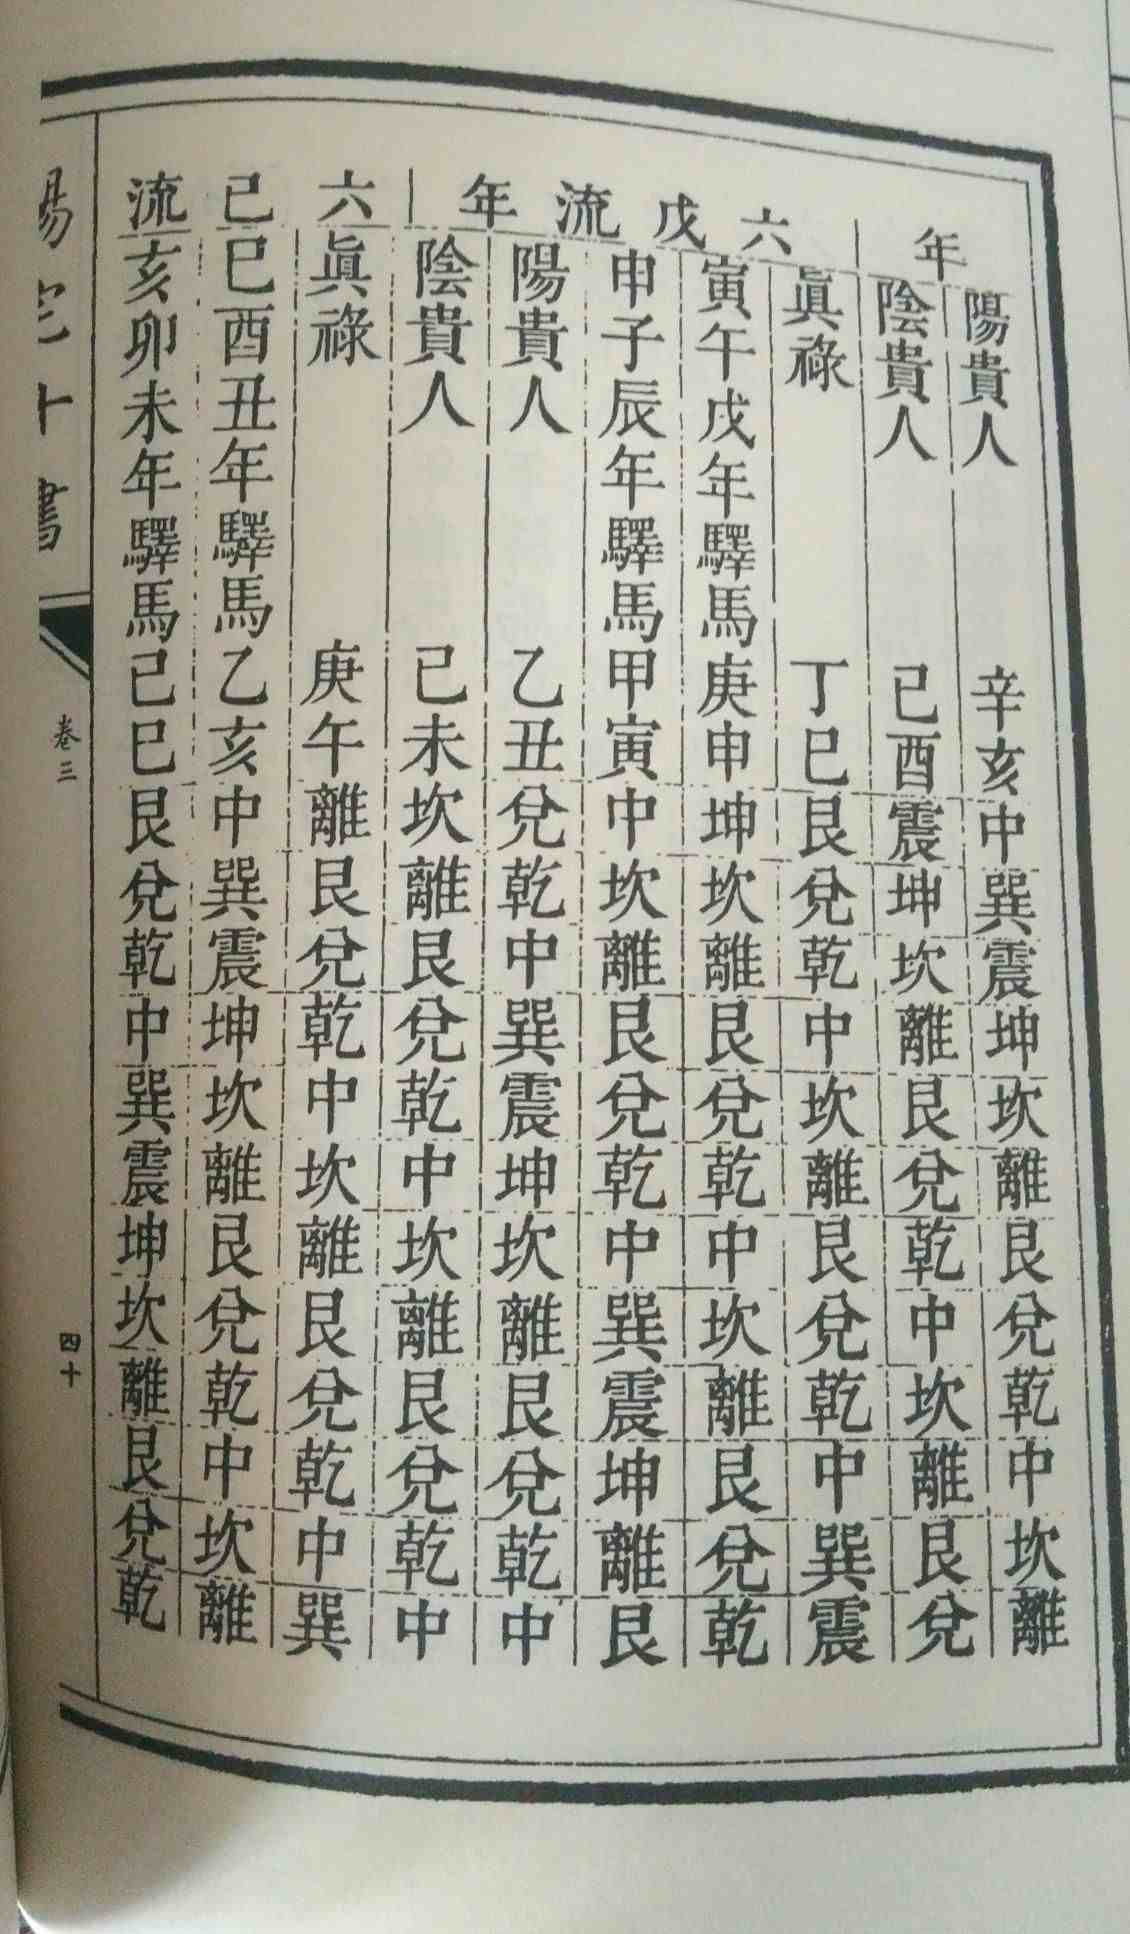 年
陽貴人辛亥中巽震坤坎離艮兌乾中坎離
陰貴人己酉震坤坎離艮兌乾中坎離艮兌
六戊流年
眞祿丁巳艮兌乾中坎離艮兌乾中巽震
寅午戌年驛馬庚申坤坎離艮兌乾中坎離艮兌乾
申子辰年驛馬甲寅中坎離艮兌乾中巽震坤離艮
陽貴人乙丑兌乾中巽震坤坎離艮兌乾中
陰貴人己未坎離艮兌乾中坎離艮兌乾中
六己流
眞祿庚午離艮兌乾中坎離艮兌乾中巽
巳酉丑年驛馬乙亥中巽震坤坎離艮兌乾中坎離
亥卯未年驛馬己巳艮兌乾中巽震坤坎離艮兌乾
陽宅十書
卷三
四十